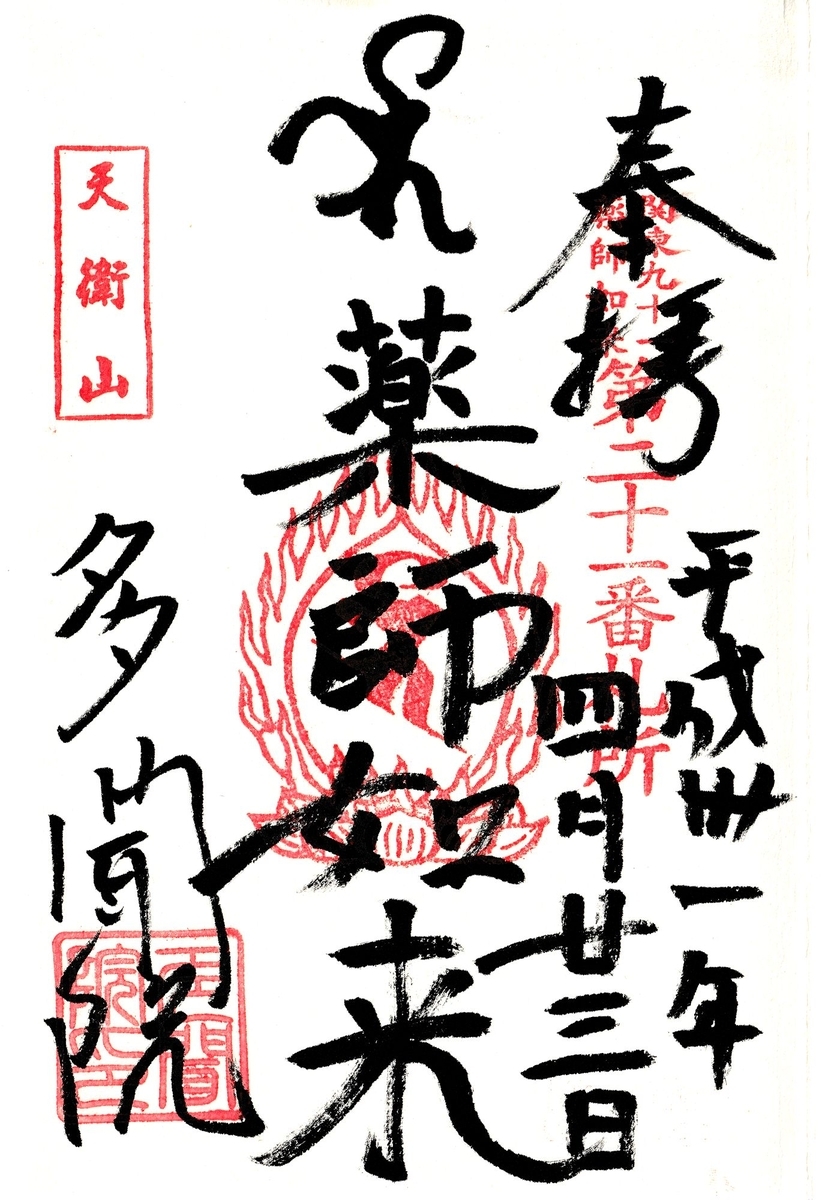 奉拝
関東九十一
薬師如来
第二十一番札所
平成卅一年
四月廿三日
薬師如来
天衛山
多聞院